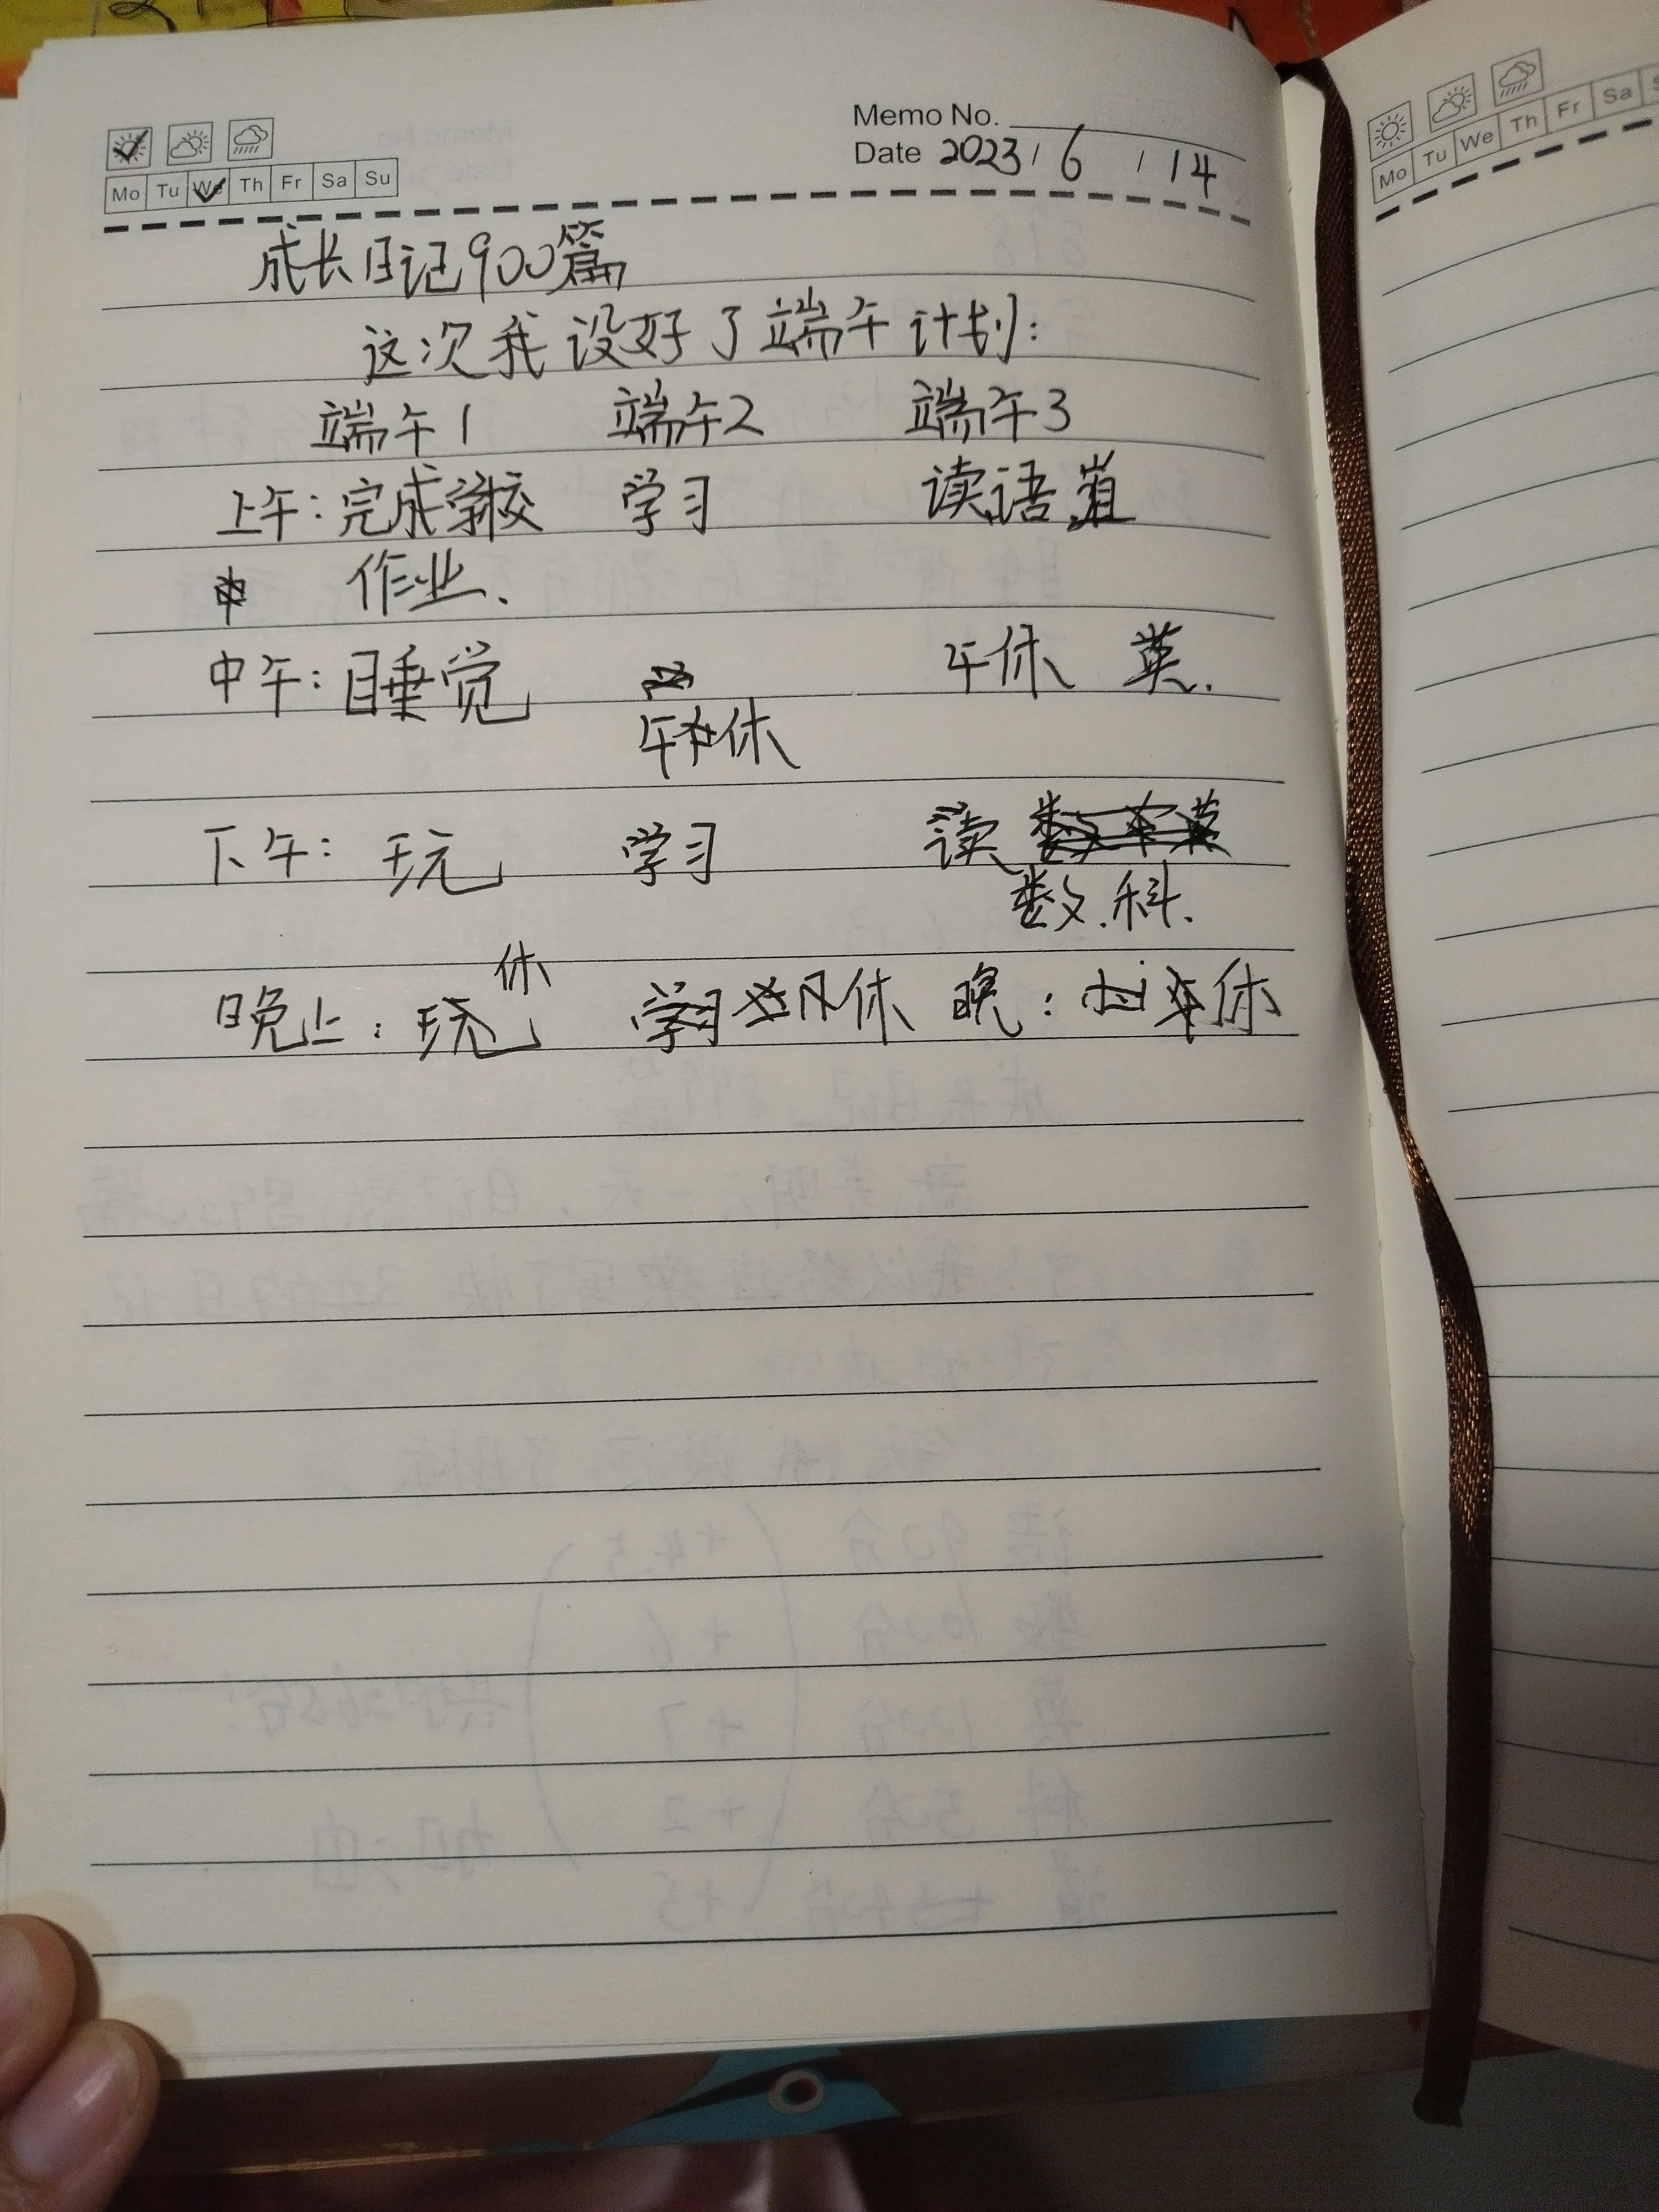 Memo No.
Mo Tu We Th Fr Sa Su
Date 2023/6/14
成长日记900篇
这次我设好了端午计划:
端午1 端午2 端午3
上午:完成学校 学习 读语.道
作业.
中午:睡觉 午休 英.
午休
下午: 玩 学习 读
数.科.
休
晚上:玩 学习 休 晚: 休
Mo Tu We Th Fr Sa